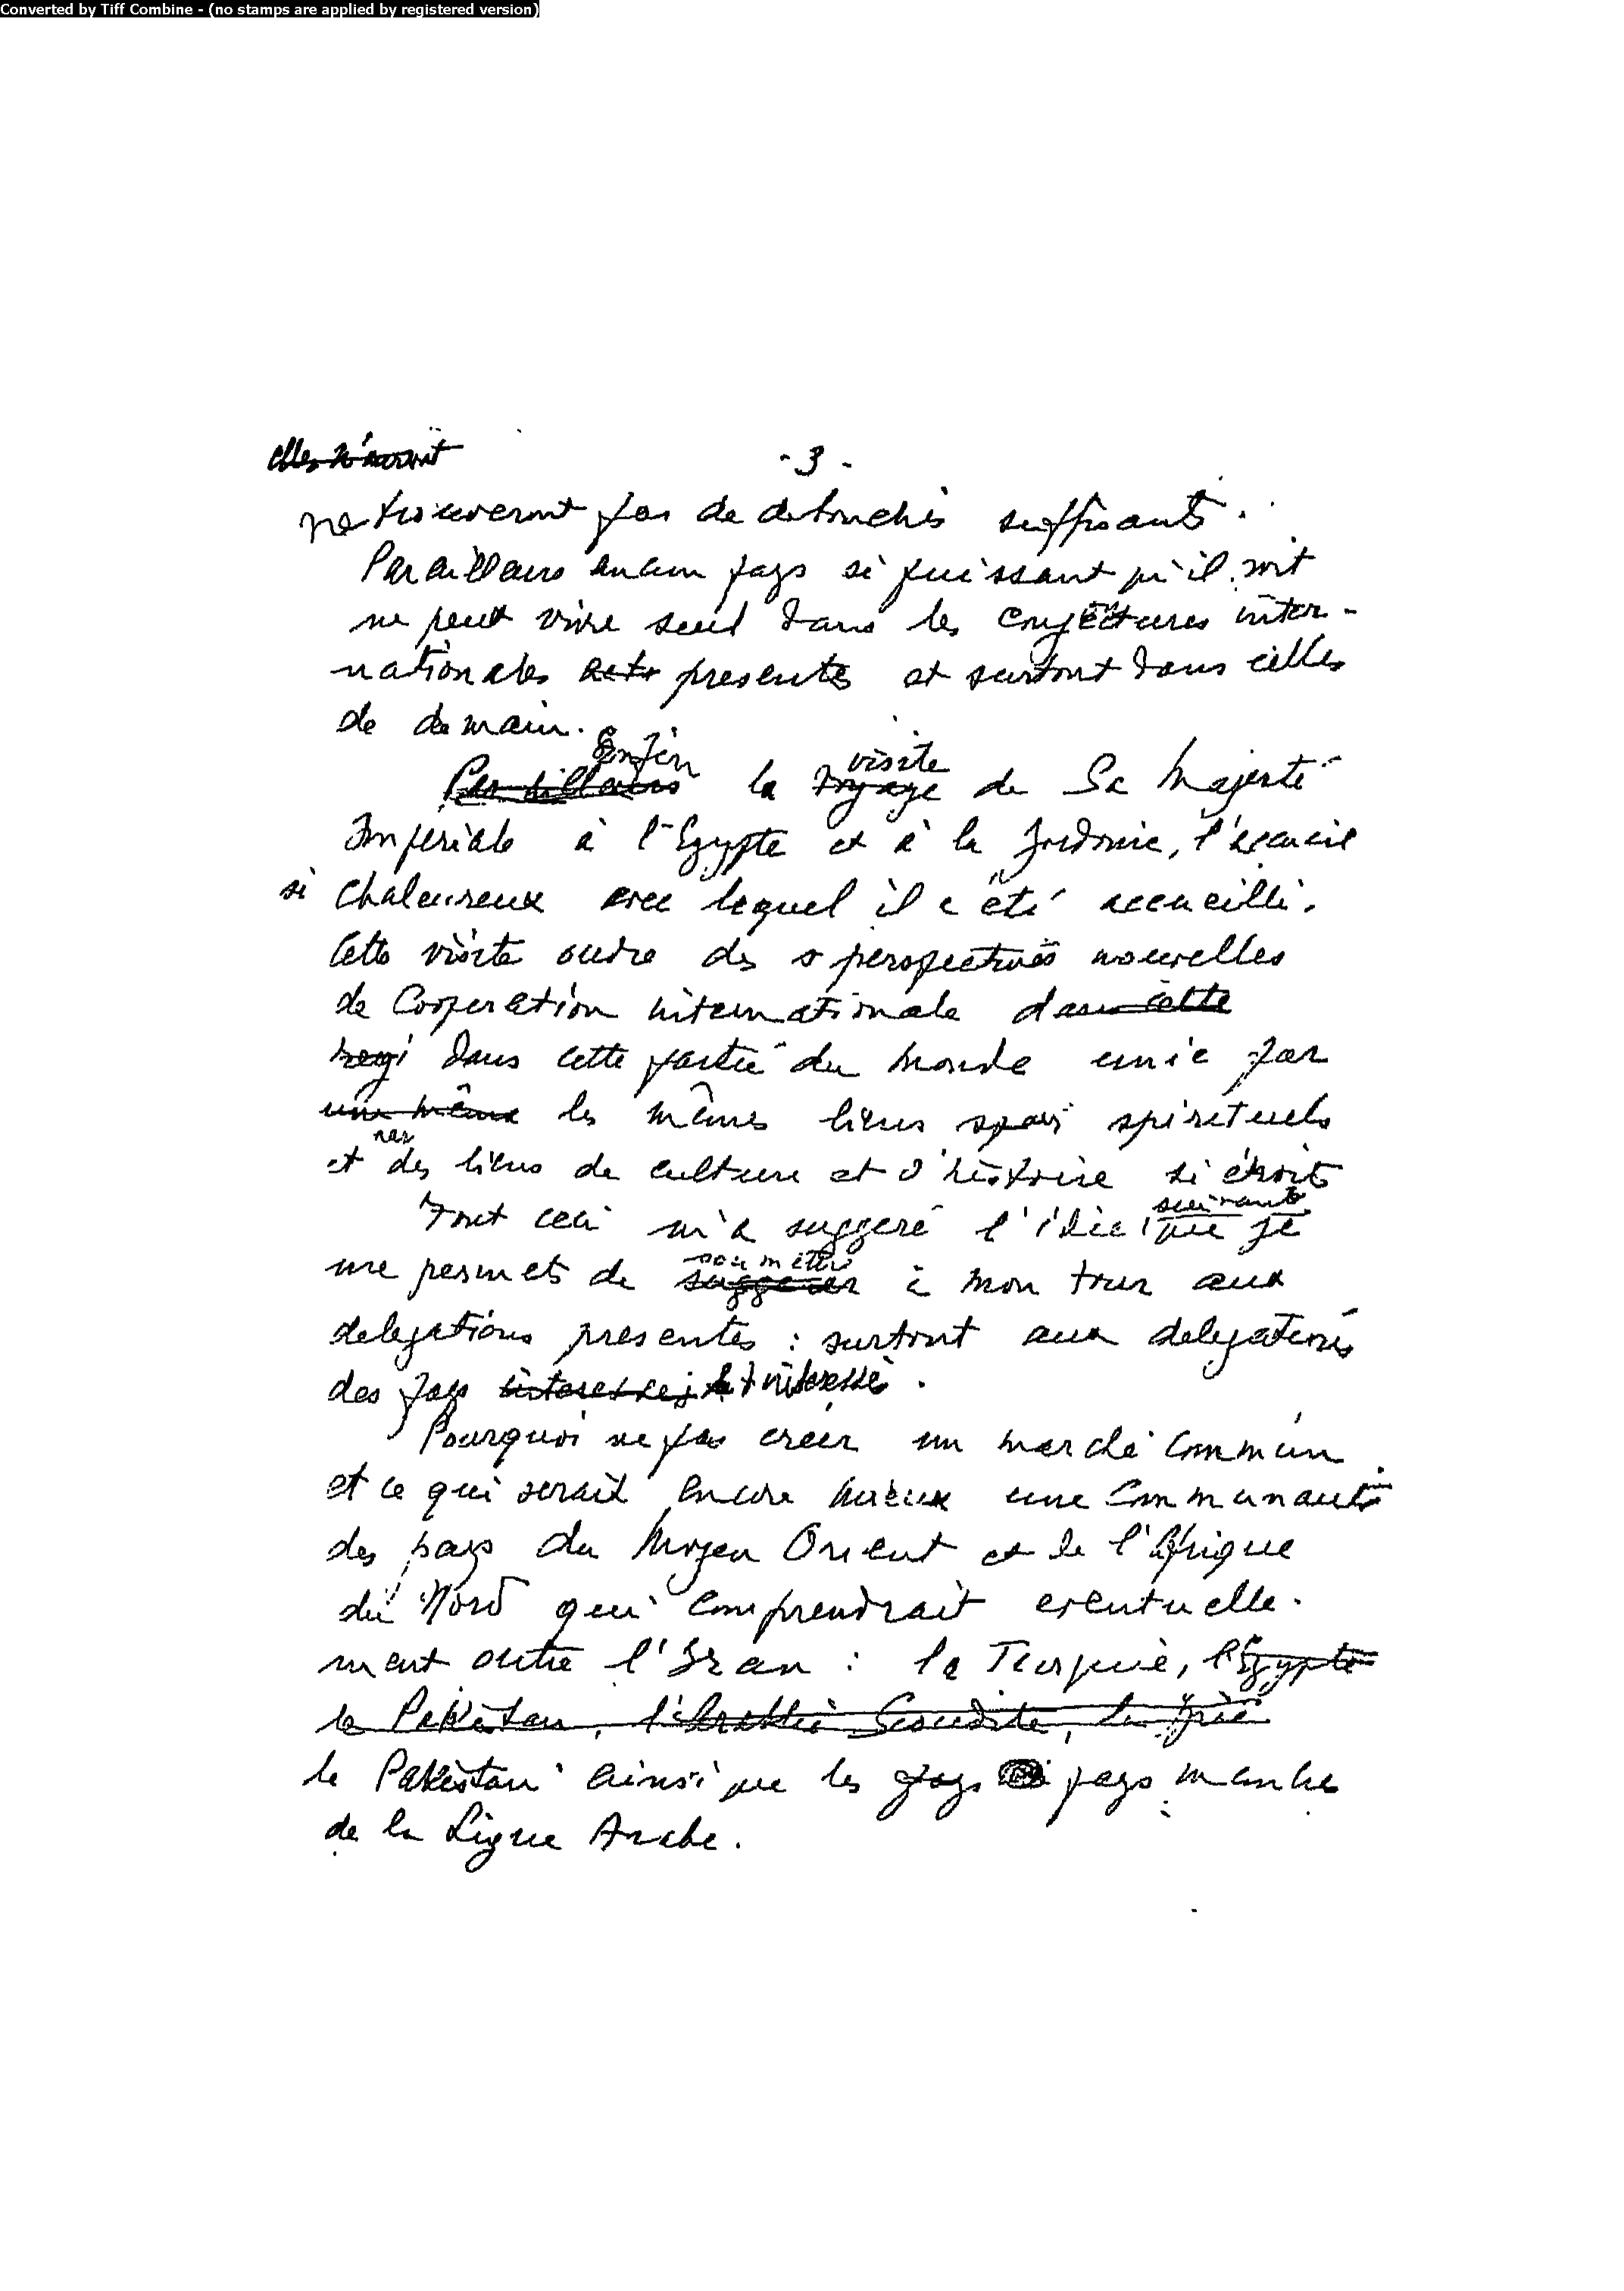 Converted by Tiff Combine - (no stamps are applied by registered version)
elles n'auront
- 3 -
ne trouveront pas de debouchés suffisants.
Par ailleurs aucun pays si puissant qu'il soit
ne peut vivre seul dans les conjectures inter-
nationales presentes et surtout dans celles
de demain.
Enfin visite
Par ailleurs la voyage de Sa Majesté
Imperiale à l'Egypte et à la Jordanie, l'accueil
si chaleureux avec lequel il a été accueilli.
Cette visite ouvre des perspectives nouvelles
de Cooperation internationale dans cette
regi dans cette partie du monde unie par
une même les mêmes liens spiri spirituels
par
et des liens de culture et d'histoire si étroits
suivante
Tout ceci m'a suggeré l'idée que je
soumettre
me permets de suggerer à mon tour aux
delegations presentes : surtout aux delegations
des pays interessés interessés.
Pourquoi ne pas créer un marché Commun
et ce qui serait encore mieux une Communauté
des pays du Moyen Orient et de l'Afrique
du Nord qui comprendrait eventuelle-
ment outre l'Iran : la Turquie, l'Egypte
le Pakistan, l'Arabie Seoudite, la Syrie
le Pakistan ainsi que les pays pays membres
de la Ligue Arabe.